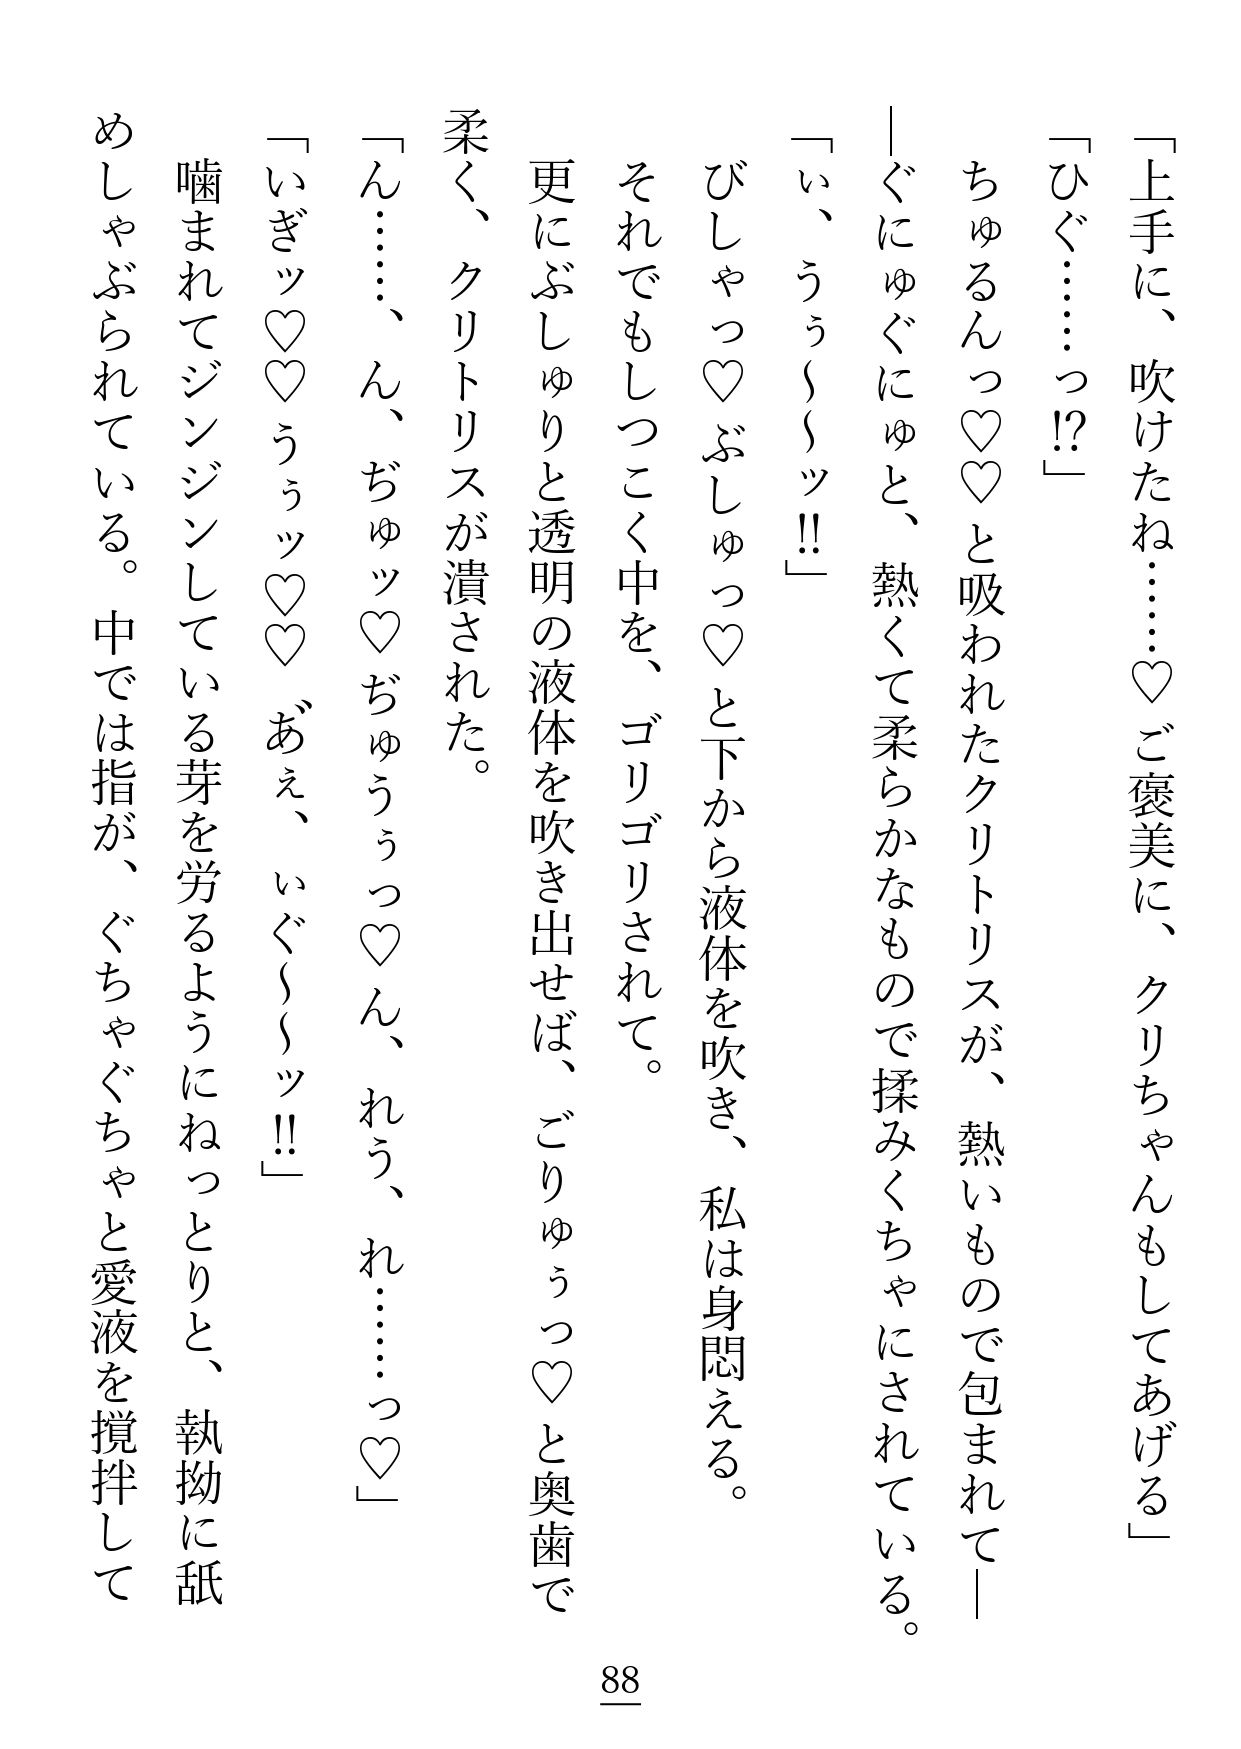 「上手に、吹けたね……♡ご褒美に、クリちゃんもしてあげる」
「ひぐ……っ!?」
　ちゅるんっ♡♡と吸われたクリトリスが、熱いもので包まれて―
―ぐにゅぐにゅと、熱くて柔らかなもので揉みくちゃにされている。
「ぃ、うぅ～～ッ!!」
　びしゃっ♡ぶしゅっ♡と下から液体を吹き、私は身悶える。
　それでもしつこく中を、ゴリゴリされて。
　更にぶしゅりと透明の液体を吹き出せば、ごりゅぅっ♡と奥歯で
柔く、クリトリスが潰された。
「ん……、ん、ぢゅッ♡ぢゅうぅっ♡ん、れう、れ……っ♡」
「いぎッ♡♡うぅッ♡♡　あ゛ぇ、ぃぐ～～ッ!!」
　噛まれてジンジンしている芽を労るようにねっとりと、執拗に舐
めしゃぶられている。中では指が、ぐちゃぐちゃと愛液を撹拌して
88